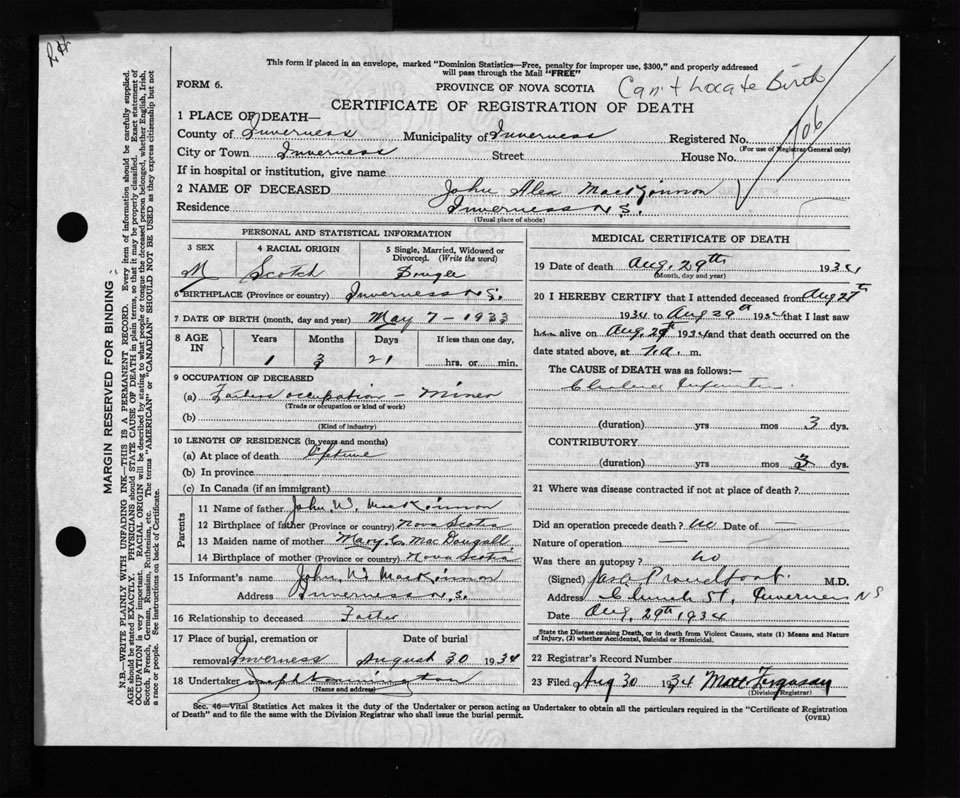 This form if placed in an envelope, marked "Dominion Statistics—Free, penalty for improper use, $300," and properly addressed
will pass through the Mail "FREE"
FORM 6.
PROVINCE OF NOVA SCOTIA
Can't Locate Birth
CERTIFICATE OF REGISTRATION OF DEATH
1 PLACE OF DEATH—
County of Inverness Municipality of Inverness Registered No. 706
(For use of Registrar General only)
City or Town Inverness Street House No.
If in hospital or institution, give name
2 NAME OF DECEASED John Alex MacKinnon
Residence Inverness N.S.
(Usual place of abode)
PERSONAL AND STATISTICAL INFORMATION
3 SEX 4 RACIAL ORIGIN 5 Single, Married, Widowed or
Divorced. (Write the word)
M Scotch Single
6 BIRTHPLACE (Province or country) Inverness N.S.
7 DATE OF BIRTH (month, day and year) May 7 - 1933
8 AGE IN Years Months Days If less than one day,
1 3 21 hrs. or min.
9 OCCUPATION OF DECEASED
(a) Fathers occupation - Miner
(Trade or occupation or kind of work)
(b)
(Kind of industry)
10 LENGTH OF RESIDENCE (in years and months)
(a) At place of death Lifetime
(b) In province
(c) In Canada (if an immigrant)
Parents
11 Name of father John W. MacKinnon
12 Birthplace of father (Province or country) Nova Scotia
13 Maiden name of mother Mary C. MacDougall
14 Birthplace of mother (Province or country) Nova Scotia
15 Informant's name John W MacKinnon
Address Inverness N.S.
16 Relationship to deceased Father
17 Place of burial, cremation or Date of burial
removal Inverness August 30 1934
18 Undertaker
(Name and address)
MEDICAL CERTIFICATE OF DEATH
19 Date of death Aug. 29th 1934
(Month, day and year)
20 I HEREBY CERTIFY that I attended deceased from Aug 27th
1934 to Aug 29th 1934 that I last saw
him alive on Aug. 29th 1934 and that death occurred on the
date stated above, at m.
The CAUSE of DEATH was as follows:—
Cholera Infantum
(duration) yrs mos 3 dys.
CONTRIBUTORY
(duration) yrs mos 3 dys.
21 Where was disease contracted if not at place of death?
Did an operation precede death? No Date of —
Nature of operation —
Was there an autopsy? No
(Signed) Proudfoot. M.D.
Address Church St., Inverness N S
Date Aug. 29th 1934
State the Disease causing Death, or in death from Violent Causes, state (1) Means and Nature
of Injury, (2) whether Accidental, Suicidal or Homicidal.
22 Registrar's Record Number
23 Filed Aug 30 1934 Matt Ferguson
(Division Registrar)
Sec. 46—Vital Statistics Act makes it the duty of the Undertaker or person acting as Undertaker to obtain all the particulars required in the "Certificate of Registration
of Death" and to file the same with the Division Registrar who shall issue the burial permit.
(OVER)
MARGIN RESERVED FOR BINDING
N.B.—WRITE PLAINLY WITH UNFADING INK—THIS IS A PERMANENT RECORD. Every item of information should be carefully supplied.
AGE should be stated EXACTLY. PHYSICIANS should STATE CAUSE OF DEATH in plain terms, so that it may be properly classified. Exact statement of
OCCUPATION is very important. RACIAL ORIGIN will be described by stating to what people or tongue the deceased person belonged, whether English, Irish,
Scotch, French, German, Russian, Ruthenian, etc. The terms "AMERICAN" or "CANADIAN" SHOULD NOT BE USED as they express citizenship but not
a race or people. See instructions on back of Certificate.